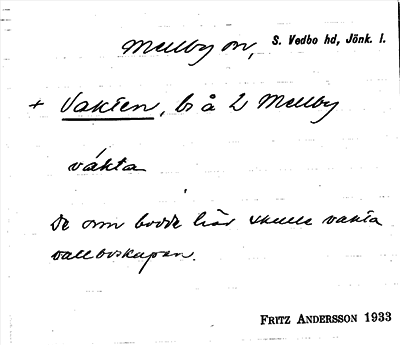 Mellby sn, S. Vedbo hd, Jönk. l.
+ Vakten, bs å 2 Mellby
vákta
De som bodde här skulle vakta
vallboskapen.
FRITZ ANDERSSON 1933